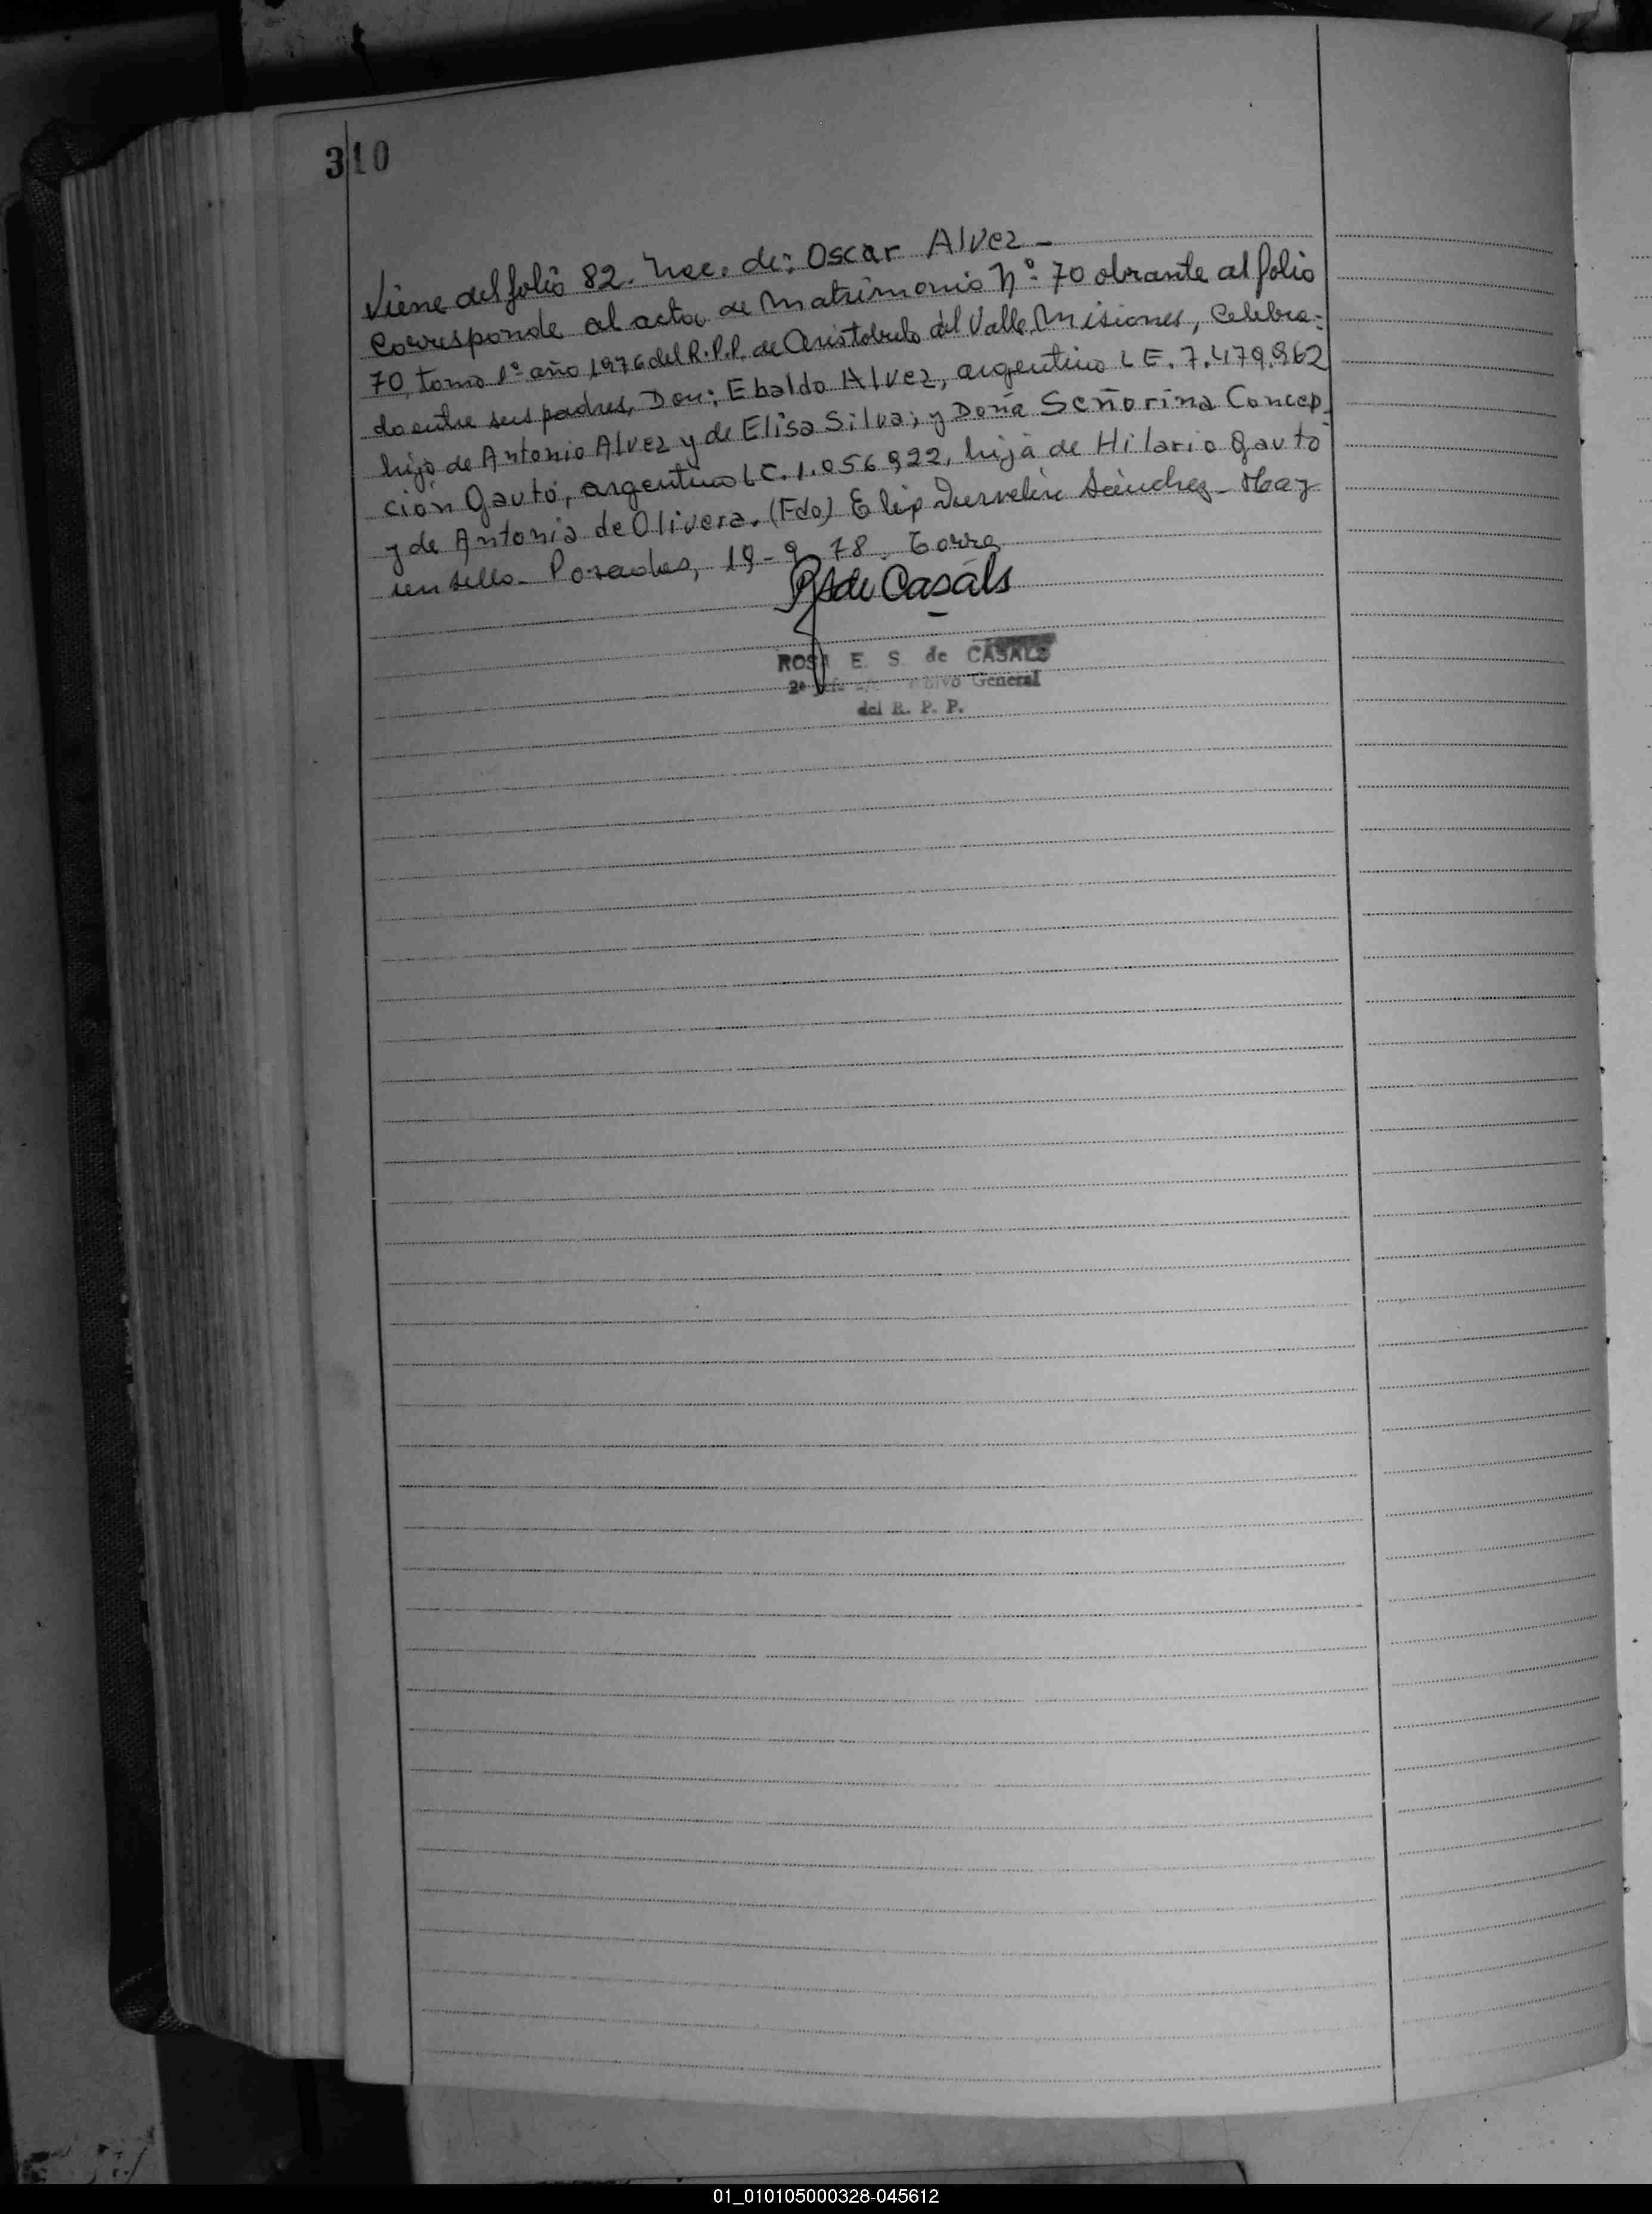 310
Viene del folio 82. Nac. de: Oscar Alvez -
Corresponde al acta de Matrimonio Nº 70 obrante al folio
70, tomo 1º año 1976 del R.P.P. de Aristobulo del Valle, Misiones, Celebra-
do entre sus padres, Don: Ebaldo Alvez, argentino L E. 7.479.962
hijo de Antonio Alvez y de Elisa Silva; y Doña Señorina Concep-
ción Gauto, argentina LC. 1.056.922, hija de Hilario Gauto
y de Antonia de Olivera. (Fdo) Sánchez - Hay
un sello - Posadas, 19-9-78.
RSde Casals
ROSA E. S. de CASALS
2º Jefe Archivo General
del R. P. P.
01_010105000328-045612